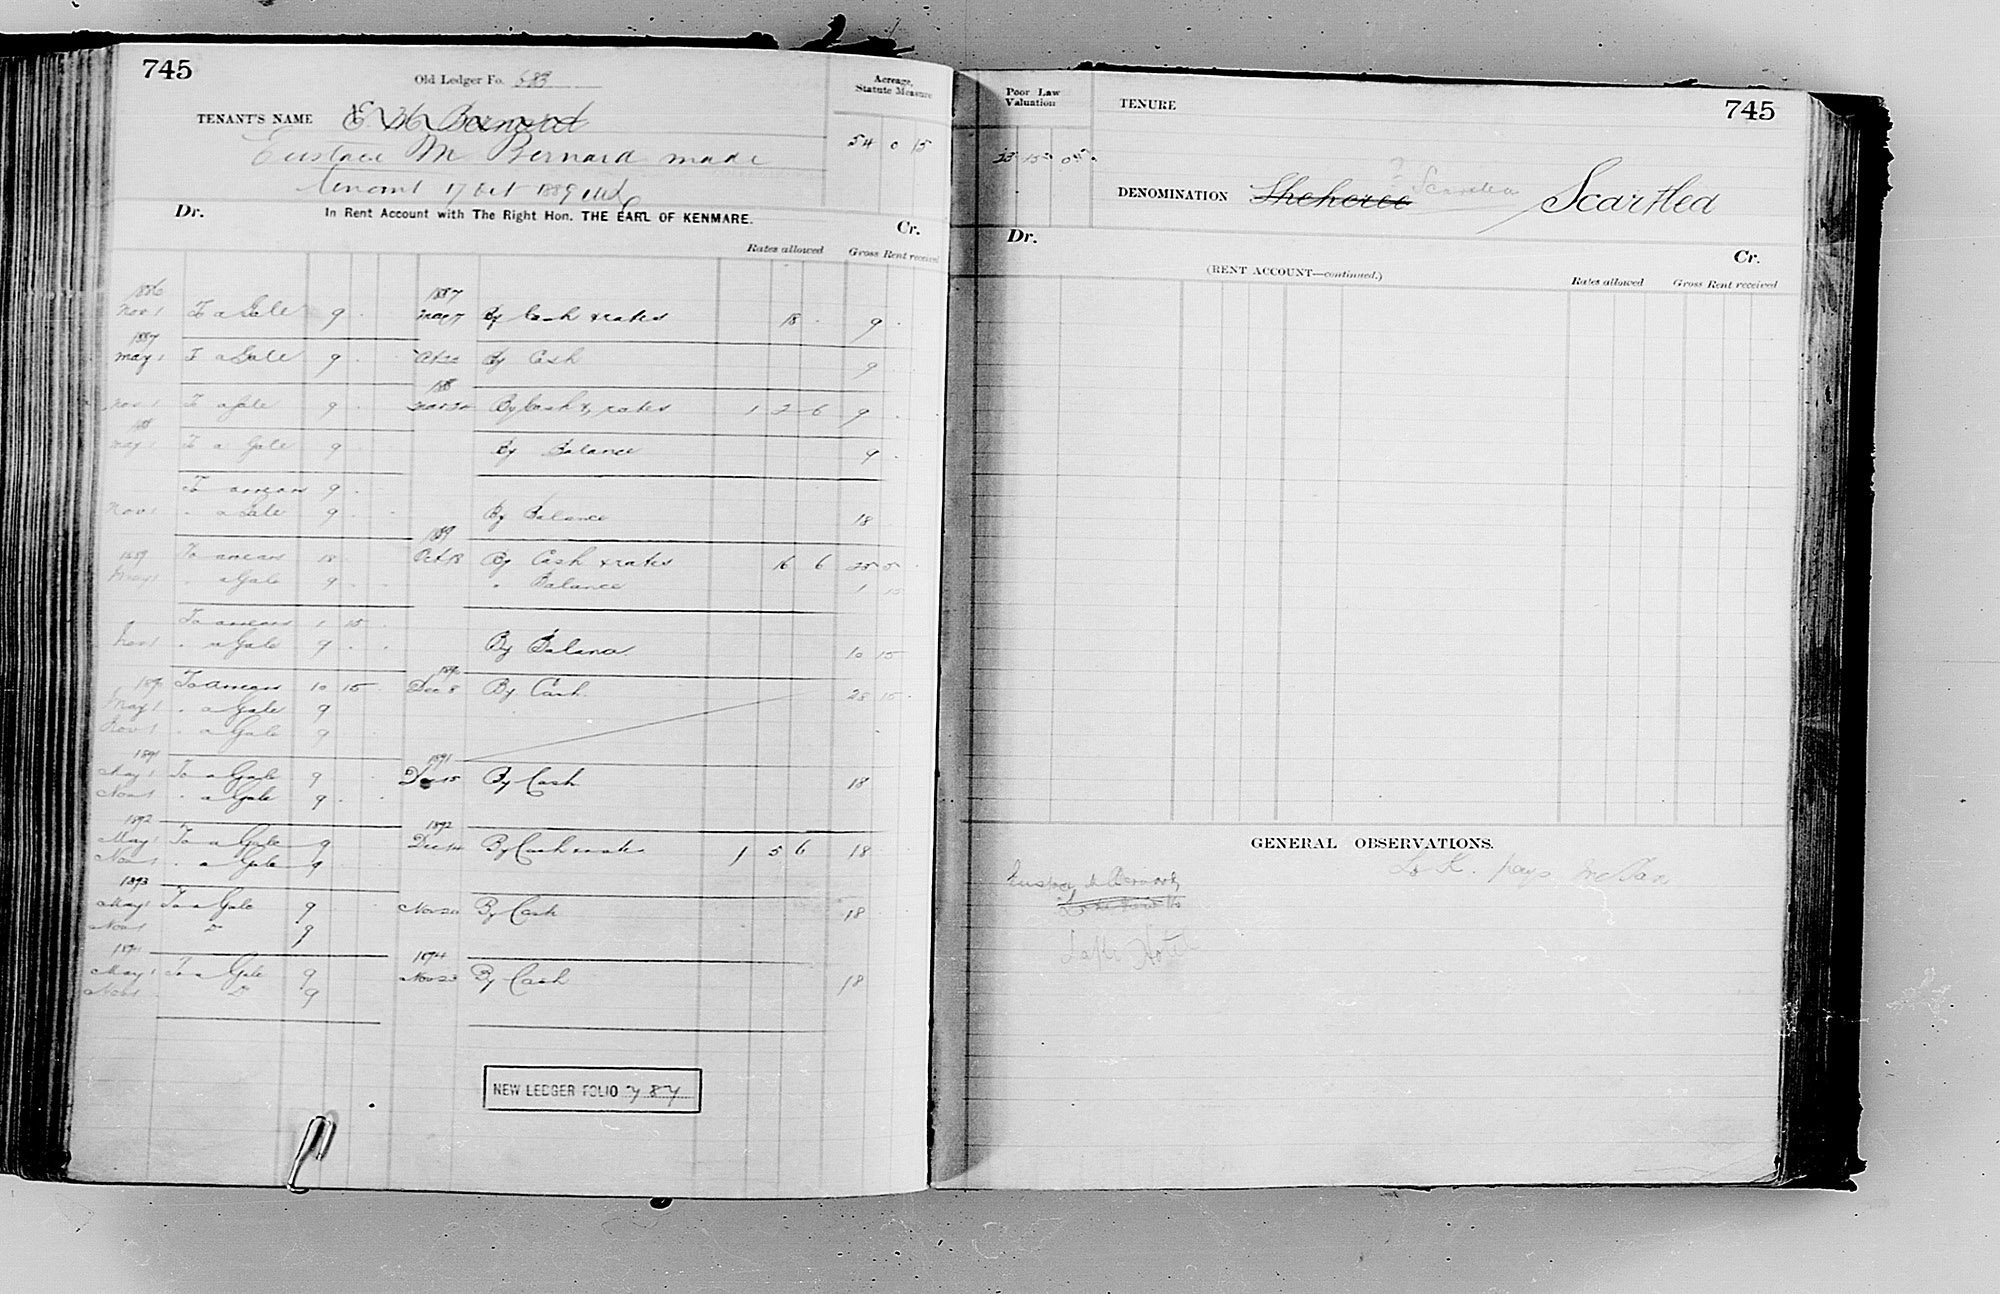 745
Old Ledger Fo. 683
Acreage,
Statute Measure
TENANT'S NAME E. M. Bernard
Eustace M Bernard made
tenant 17 Oct 1889
54 0 15
Dr. In Rent Account with The Right Hon. THE EARL OF KENMARE. Cr.
Rates allowed Gross Rent received
1886 1887
Nov 1 To a Gale 9 May 7 By Cash & rates 18 9
1887
May 1 To a Gale 9 By Cash 9
188
Nov 1 To a Gale 9 Mar 20 By Cash & rates 1 2 6 9
188
May 1 To a Gale 9 By Balance 9
To arrears 9
Nov 1 " a Gale 9 By Balance 18
1889 1889
To arrears 18 Oct 18 By Cash & rates 16 6 25 5
May 1 " a Gale 9 " Balance 1 15
To arrears 1 15
Nov 1 " a Gale 9 By Balance 10 15
1890 1890
To arrears 10 15 Dec 8 By Cash 28 15
May 1 " a Gale 9
Nov 1 " a Gale 9
1891 1891
May 1 To a Gale 9 Dec 15 By Cash 18
Nov 1 " a Gale 9
1892 1892
May 1 To a Gale 9 Dec 14 By Cash & rates 1 5 6 18
Nov 1 " a Gale 9
1893
May 1 To a Gale 9 Nov 20 By Cash 18
Nov 1 Do 9
1894 1894
May 1 To a Gale 9 Nov 23 By Cash 18
Nov 1 Do 9
NEW LEDGER FOLIO 787
Poor Law
Valuation
TENURE
745
23 15 0
DENOMINATION Sheheree ? Scartlea Scartlea
Dr. Cr.
(RENT ACCOUNT—continued.)
Rates allowed Gross Rent received
GENERAL OBSERVATIONS.
Ld K. pays
Eustace M Bernard
Lake Hotel